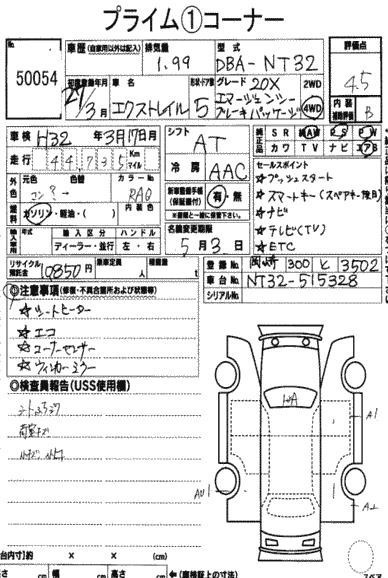 プライム①コーナー
No.
50054
車歴(自家用以外は記入) 排気量 型式 評価点
1.99 DBA-NT32 4.5
初度登録年月 車名 形状・ドア数 グレード 20X 2WD
3月 エクストレイル 5 エマージェンシーブレーキパッケージ 4WD
内装補助評価 B
車検 H32年3月17日 シフト AT
純正品 SR AW PS PW
カワ TV ナビ エアB
走行 44735 Km マイル 冷房 AAC
セールスポイント
外色 元色 色替 カラーNo. RAQ
☆プッシュスタート
燃料 ガソリン・軽油・( ) 内装色
新車整備手帳(保証書付) 有・無
☆スマートキー(スペアキー
☆ナビ
輸入車用 年式 輸入区分 ハンドル
ディーラー・並行 左・右
名義変更期限
5月3日
☆テレビ(TV)
☆ETC
リサイクル預託金 10850円 乗車定員 人 積載量 t
登録No. 岡崎 300 と 3502
車台No. NT32-515328
シリアルNo.
◎注意事項(修復・不具合箇所および状態等)
☆シートヒーター
☆エコ
☆コーナーセンサー
☆ウィンカーミラー
◎検査員報告(USS使用欄)
荷室キズ
A1
(荷台内寸)約 × × (cm)
長さ cm 幅 cm 高さ cm ←(車検証上の寸法)